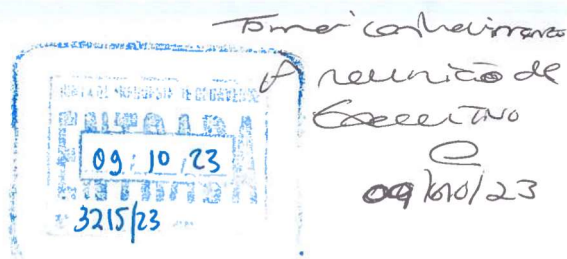 Tomei conhecimento
À reunião de
Executivo
09/10/23
JUNTA DE FREGUESIA DE
ENTRADA
09.10.23
3215/23